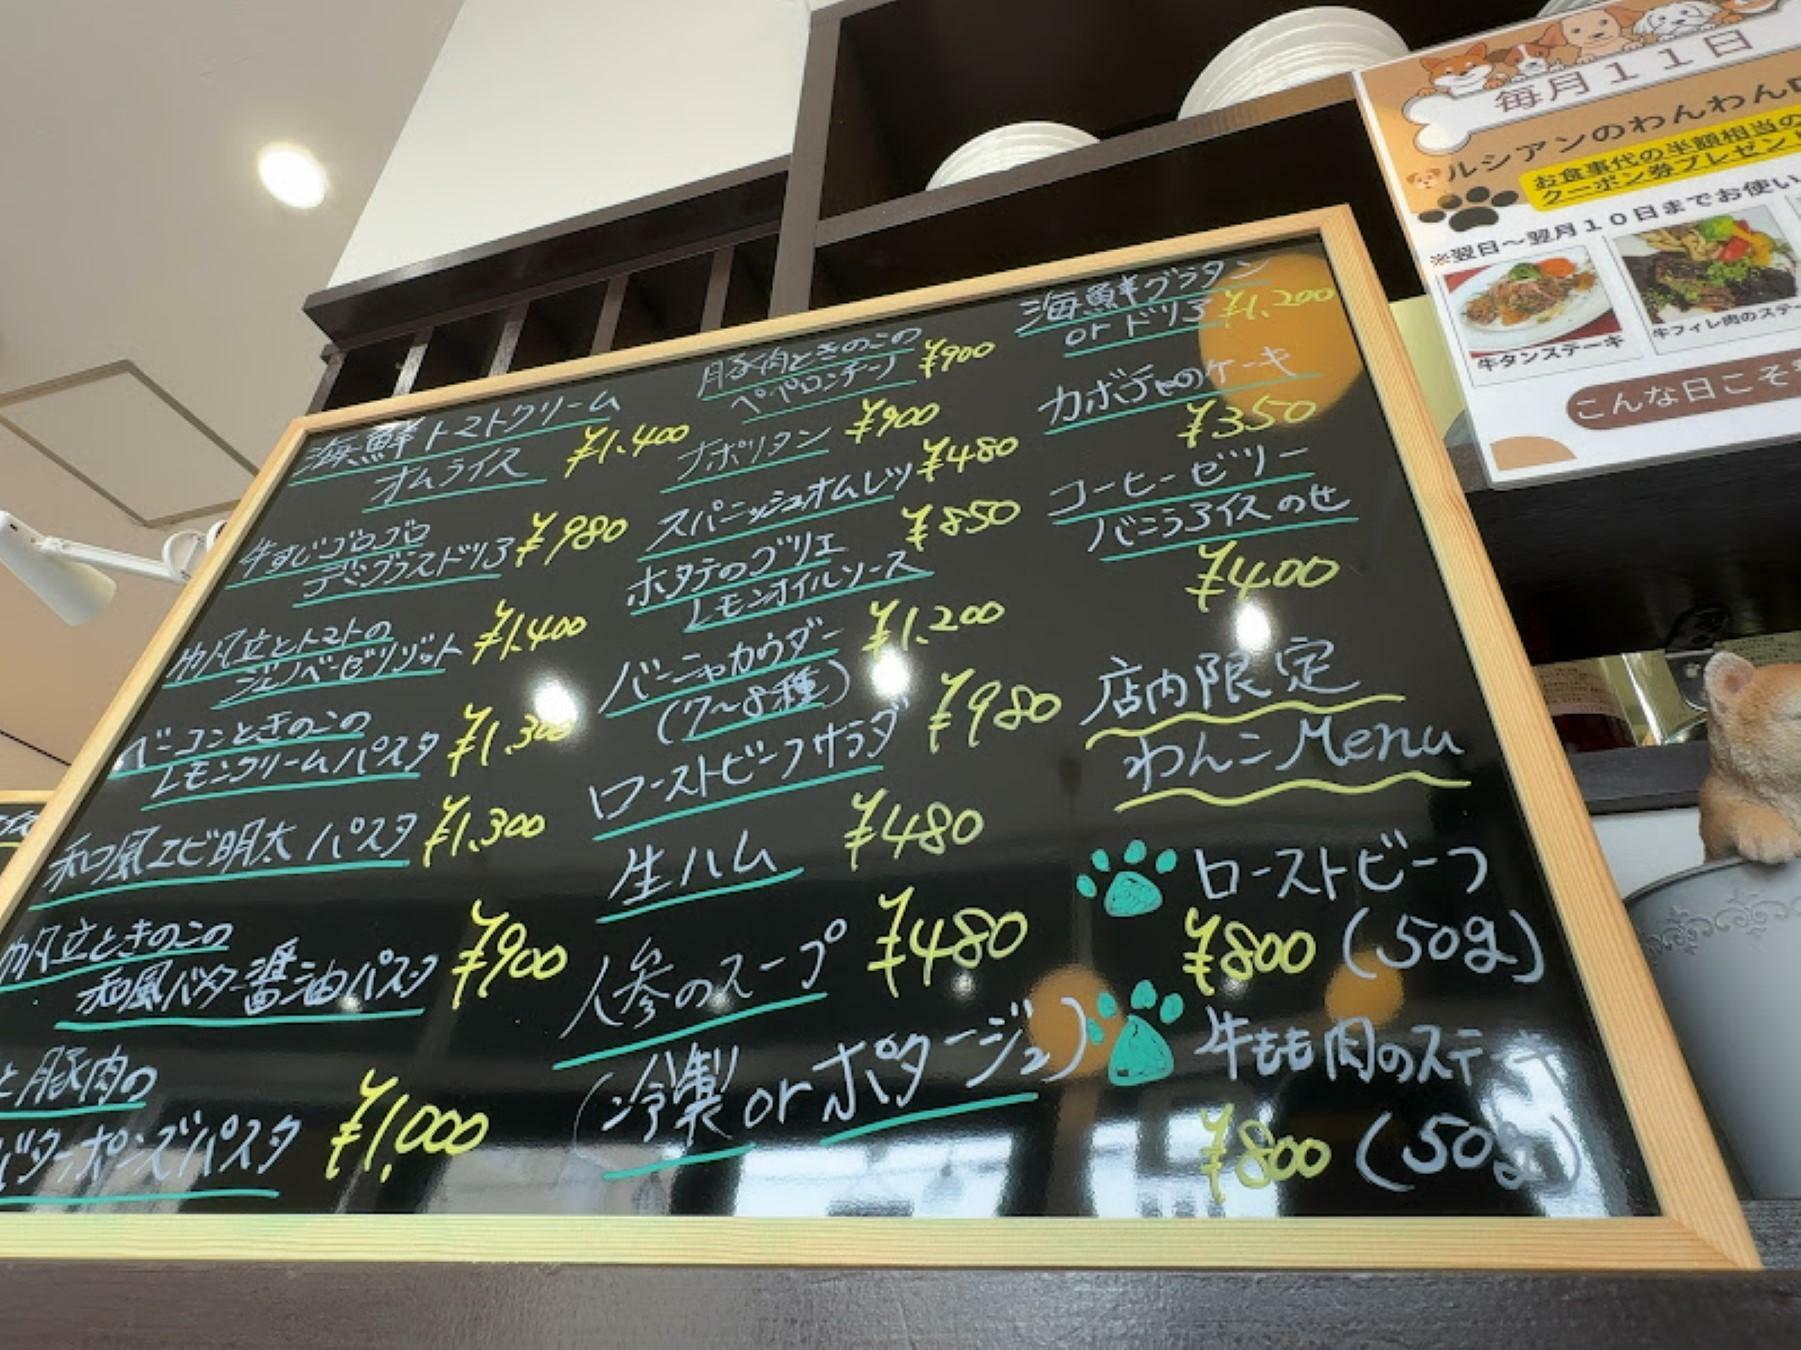 海鮮トマトクリーム
オムライス ¥1,400
牛すじゴロゴロ
デミグラスドリア ¥980
帆立とトマトの
ジェノベーゼリゾット ¥1,400
ベーコンときのこの
レモンクリームパスタ ¥1,300
和風エビ明太パスタ ¥1,300
帆立ときのこの
和風バター醤油パスタ ¥900
と豚肉の
バターポンズパスタ ¥1,000
豚肉ときのこの
ペペロンチーノ ¥900
ナポリタン ¥900
スパニッシュオムレツ ¥480
ホタテのグリエ
レモンオイルソース ¥850
バーニャカウダー
(7〜8種) ¥1,200
ローストビーフサラダ ¥980
生ハム ¥480
人参のスープ ¥480
(冷製 or ポタージュ)
海鮮グラタン
or ドリア ¥1,200
カボチャのケーキ
¥350
コーヒーゼリー
バニラアイスのせ
¥400
店内限定
わんこMenu
ローストビーフ
¥800 (50g)
牛もも肉のステーキ
¥800 (50g)
毎月11日
ルシアンのわんわん
お食事代の半額相当の
クーポン券プレゼント
※翌日〜翌月10日までお使い
牛タンステーキ
牛フィレ肉のステー
こんな日こそ